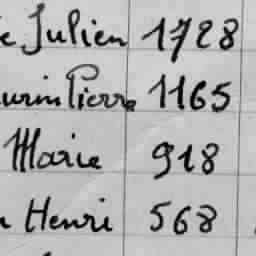 Julien 1728
Pierre 1165
Marie 918
Henri 568